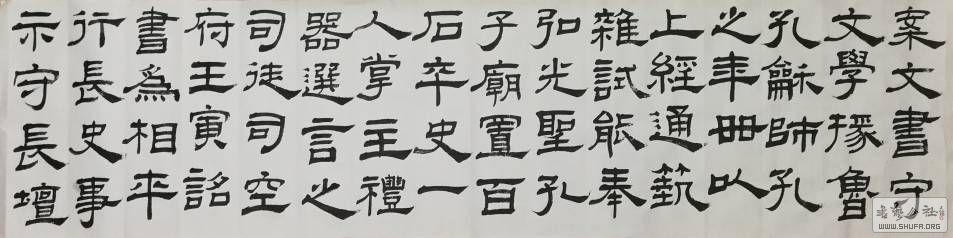 案文書守
文學掾魯
孔龢師孔
之年卌以
上經通藝
雜試能奉
弘光聖孔
子廟置百
石卒史一
人掌主禮
器選言之
司徒司空
府王寅詔
書為相平
行長史事
示守長壇
书艺公社
WWW.SHUFA.ORG